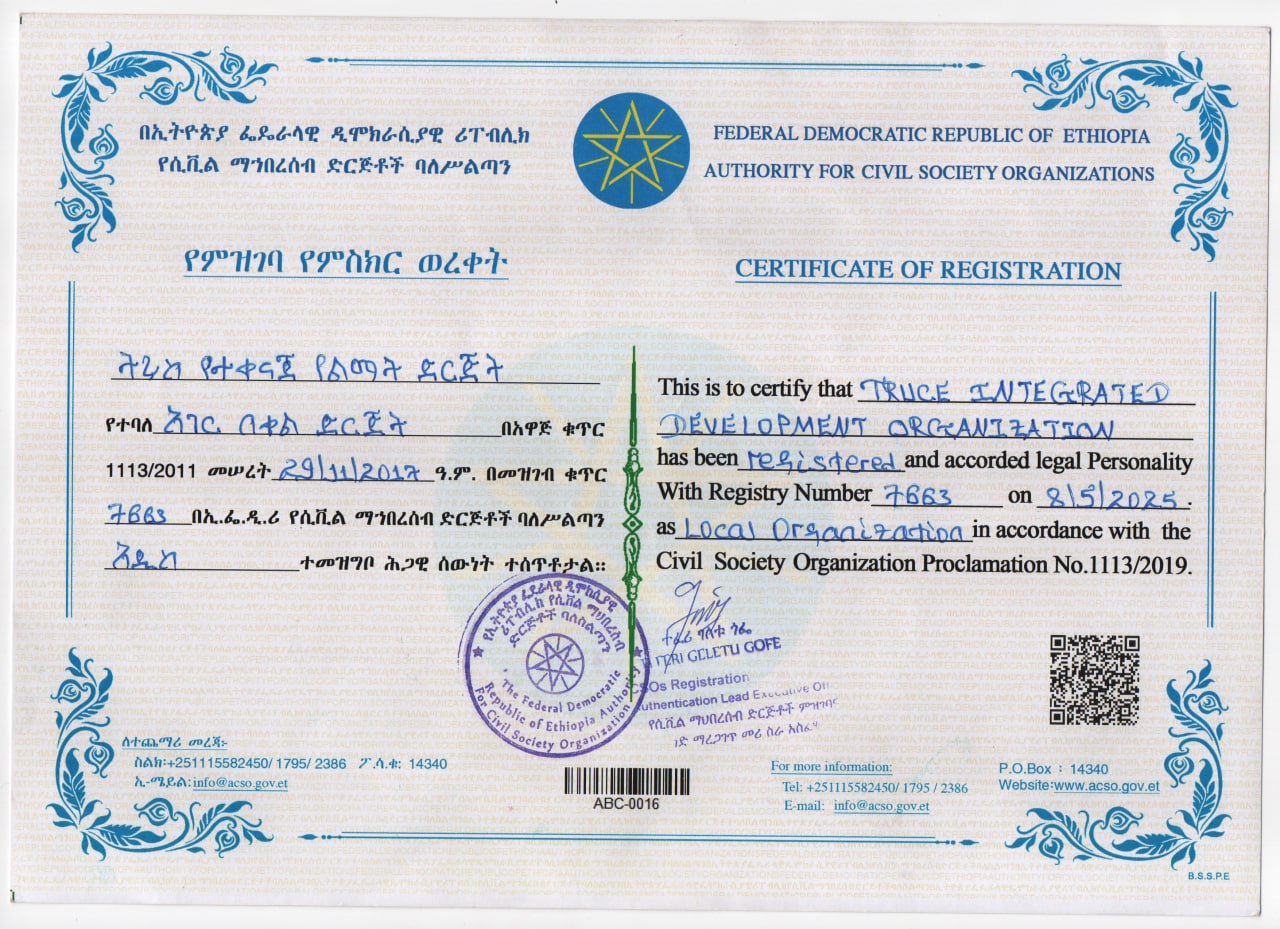 በኢትዮጵያ ፌዴራላዊ ዲሞክራሲያዊ ሪፐብሊክ
የሲቪል ማኅበረሰብ ድርጅቶች ባለሥልጣን
FEDERAL DEMOCRATIC REPUBLIC OF ETHIOPIA
AUTHORITY FOR CIVIL SOCIETY ORGANIZATIONS
የምዝገባ የምስክር ወረቀት
CERTIFICATE OF REGISTRATION
ትሩስ የተቀናጀ የልማት ድርጅት
የተባለ አገር በቀል ድርጅት በአዋጅ ቁጥር
1113/2011 መሠረት 29/11/2017 ዓ.ም. በመዝገብ ቁጥር
7663 በኢ.ፌ.ዲ.ሪ የሲቪል ማኅበረሰብ ድርጅቶች ባለሥልጣን
አዲስ ተመዝግቦ ሕጋዊ ሰውነት ተሰጥቶታል።
This is to certify that TRUCE INTEGRATED
DEVELOPMENT ORGANIZATION
has been registered and accorded legal Personality
With Registry Number 7663 on 8/5/2025.
as Local Organization in accordance with the
Civil Society Organization Proclamation No.1113/2019.
የኢትዮጵያ ፌደራላዊ ዲሞክራሲያዊ
ሪፐብሊክ የሲቪል ማህበረሰብ
ድርጅቶች ባለስልጣን
The Federal Democratic
Republic of Ethiopia Authority
For Civil Society Organization
ተፈሪ ገለቱ ጎፌ
GELETU GOFE
CSOs Registration
Authentication Lead Executive
የሲቪል ማህበረሰብ ድርጅቶች
ማረጋገጥ መሪ ስራ
ለተጨማሪ መረጃ፡-
ስልክ፡+251115582450/ 1795/ 2386 ፖ.ሳ.ቁ: 14340
ኢ-ሜይል: info@acso.gov.et
ABC-0016
For more information:
Tel: +251115582450/ 1795 / 2386
E-mail: info@acso.gov.et
P.O.Box : 14340
Website:www.acso.gov.et
B.S.S.P.E